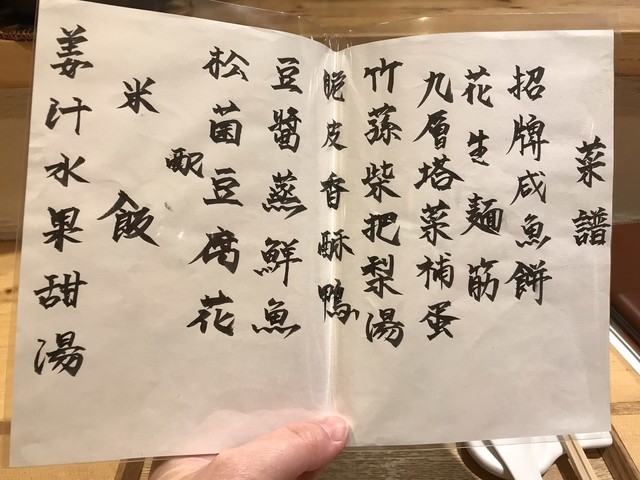 菜譜
招牌咸魚餅
花生麵筋
九層塔菜補蛋
竹蓀柴把梨湯
脆皮香酥鴨
豆醬蒸鮮魚
松菌豆腐花
配
米飯
姜汁水果甜湯